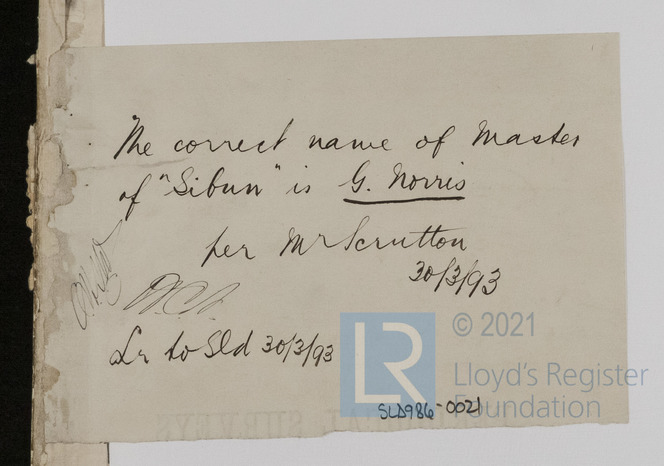 The correct name of Master
of "Sibun" is G. Norris
per Mr Scrutton
30/3/93
Lr to Sld 30/3/93
LR
© 2021
Lloyd's Register
Foundation
SLD986-0021